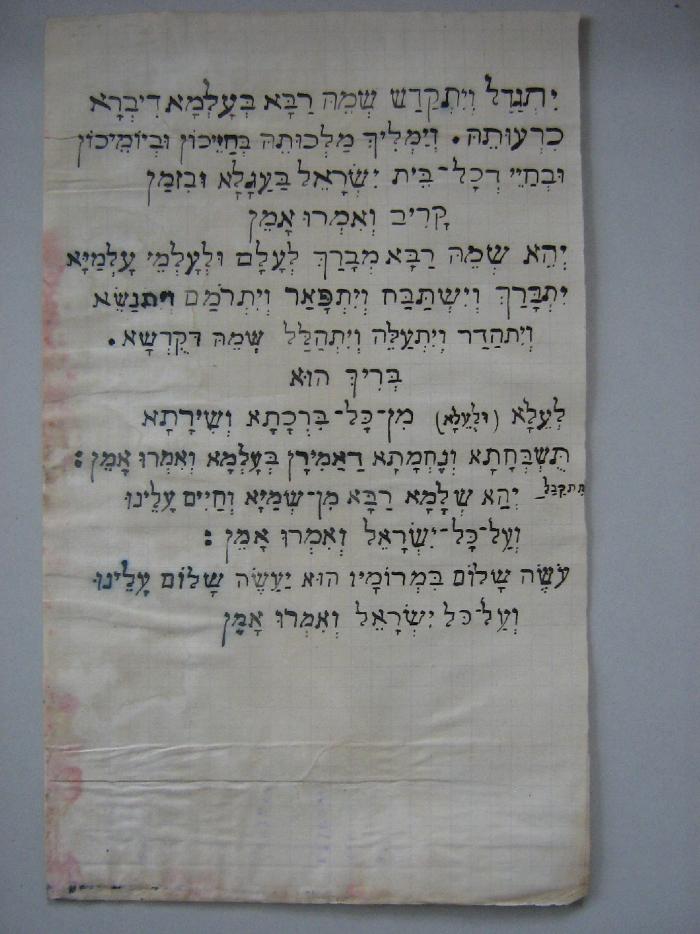 יִתְגַדַל וְיִתְקַדַשׁ שְׁמֵהּ רַבָּא בְּעָלְמָא דִיבְרָא
כִרְעוּתֵהּ. וְיַמְלִיךְ מַלְכוּתֵהּ בְּחַיֵיכוֹן וּבְיוֹמֵיכוֹן
וּבְחַיֵי דְכָל־בֵּית יִשְׂרָאֵל בַּעֲגָלָא וּבִזְמַן
קָרִיב וְאִמְרוּ אָמֵן
יְהֵא שְׁמֵהּ רַבָּא מְבָרַךְ לְעָלַם וּלְעָלְמֵי עָלְמַיָּא
יִתְבָּרַךְ וְיִשְׁתַּבַּח וְיִתְפָּאַר וְיִתְרֹמַם וְיִתְנַשֵּׂא
וְיִתְהַדַר וְיִתְעַלֵּה וְיִתְהַלַּל שְׁמֵהּ דְּקֻדְשָׁא.
בְּרִיךְ הוּא
לְעֵלָּא (וּלְעֵלָּא) מִן־כָּל־בִּרְכָתָא וְשִׁירָתָא
תֻּשְׁבְּחָתָא וְנֶחֱמָתָא דַּאֲמִירָן בְּעָלְמָא וְאִמְרוּ אָמֵן:
תתקבל יְהֵא שְׁלָמָא רַבָּא מִן־שְׁמַיָּא וְחַיִים עָלֵינוּ
וְעַל־כָּל־יִשְׂרָאֵל וְאִמְרוּ אָמֵן:
עֹשֶׂה שָׁלוֹם בִּמְרוֹמָיו הוּא יַעֲשֶׂה שָׁלוֹם עָלֵינוּ
וְעַל־כל יִשְׂרָאֵל וְאִמְרוּ אָמֵן